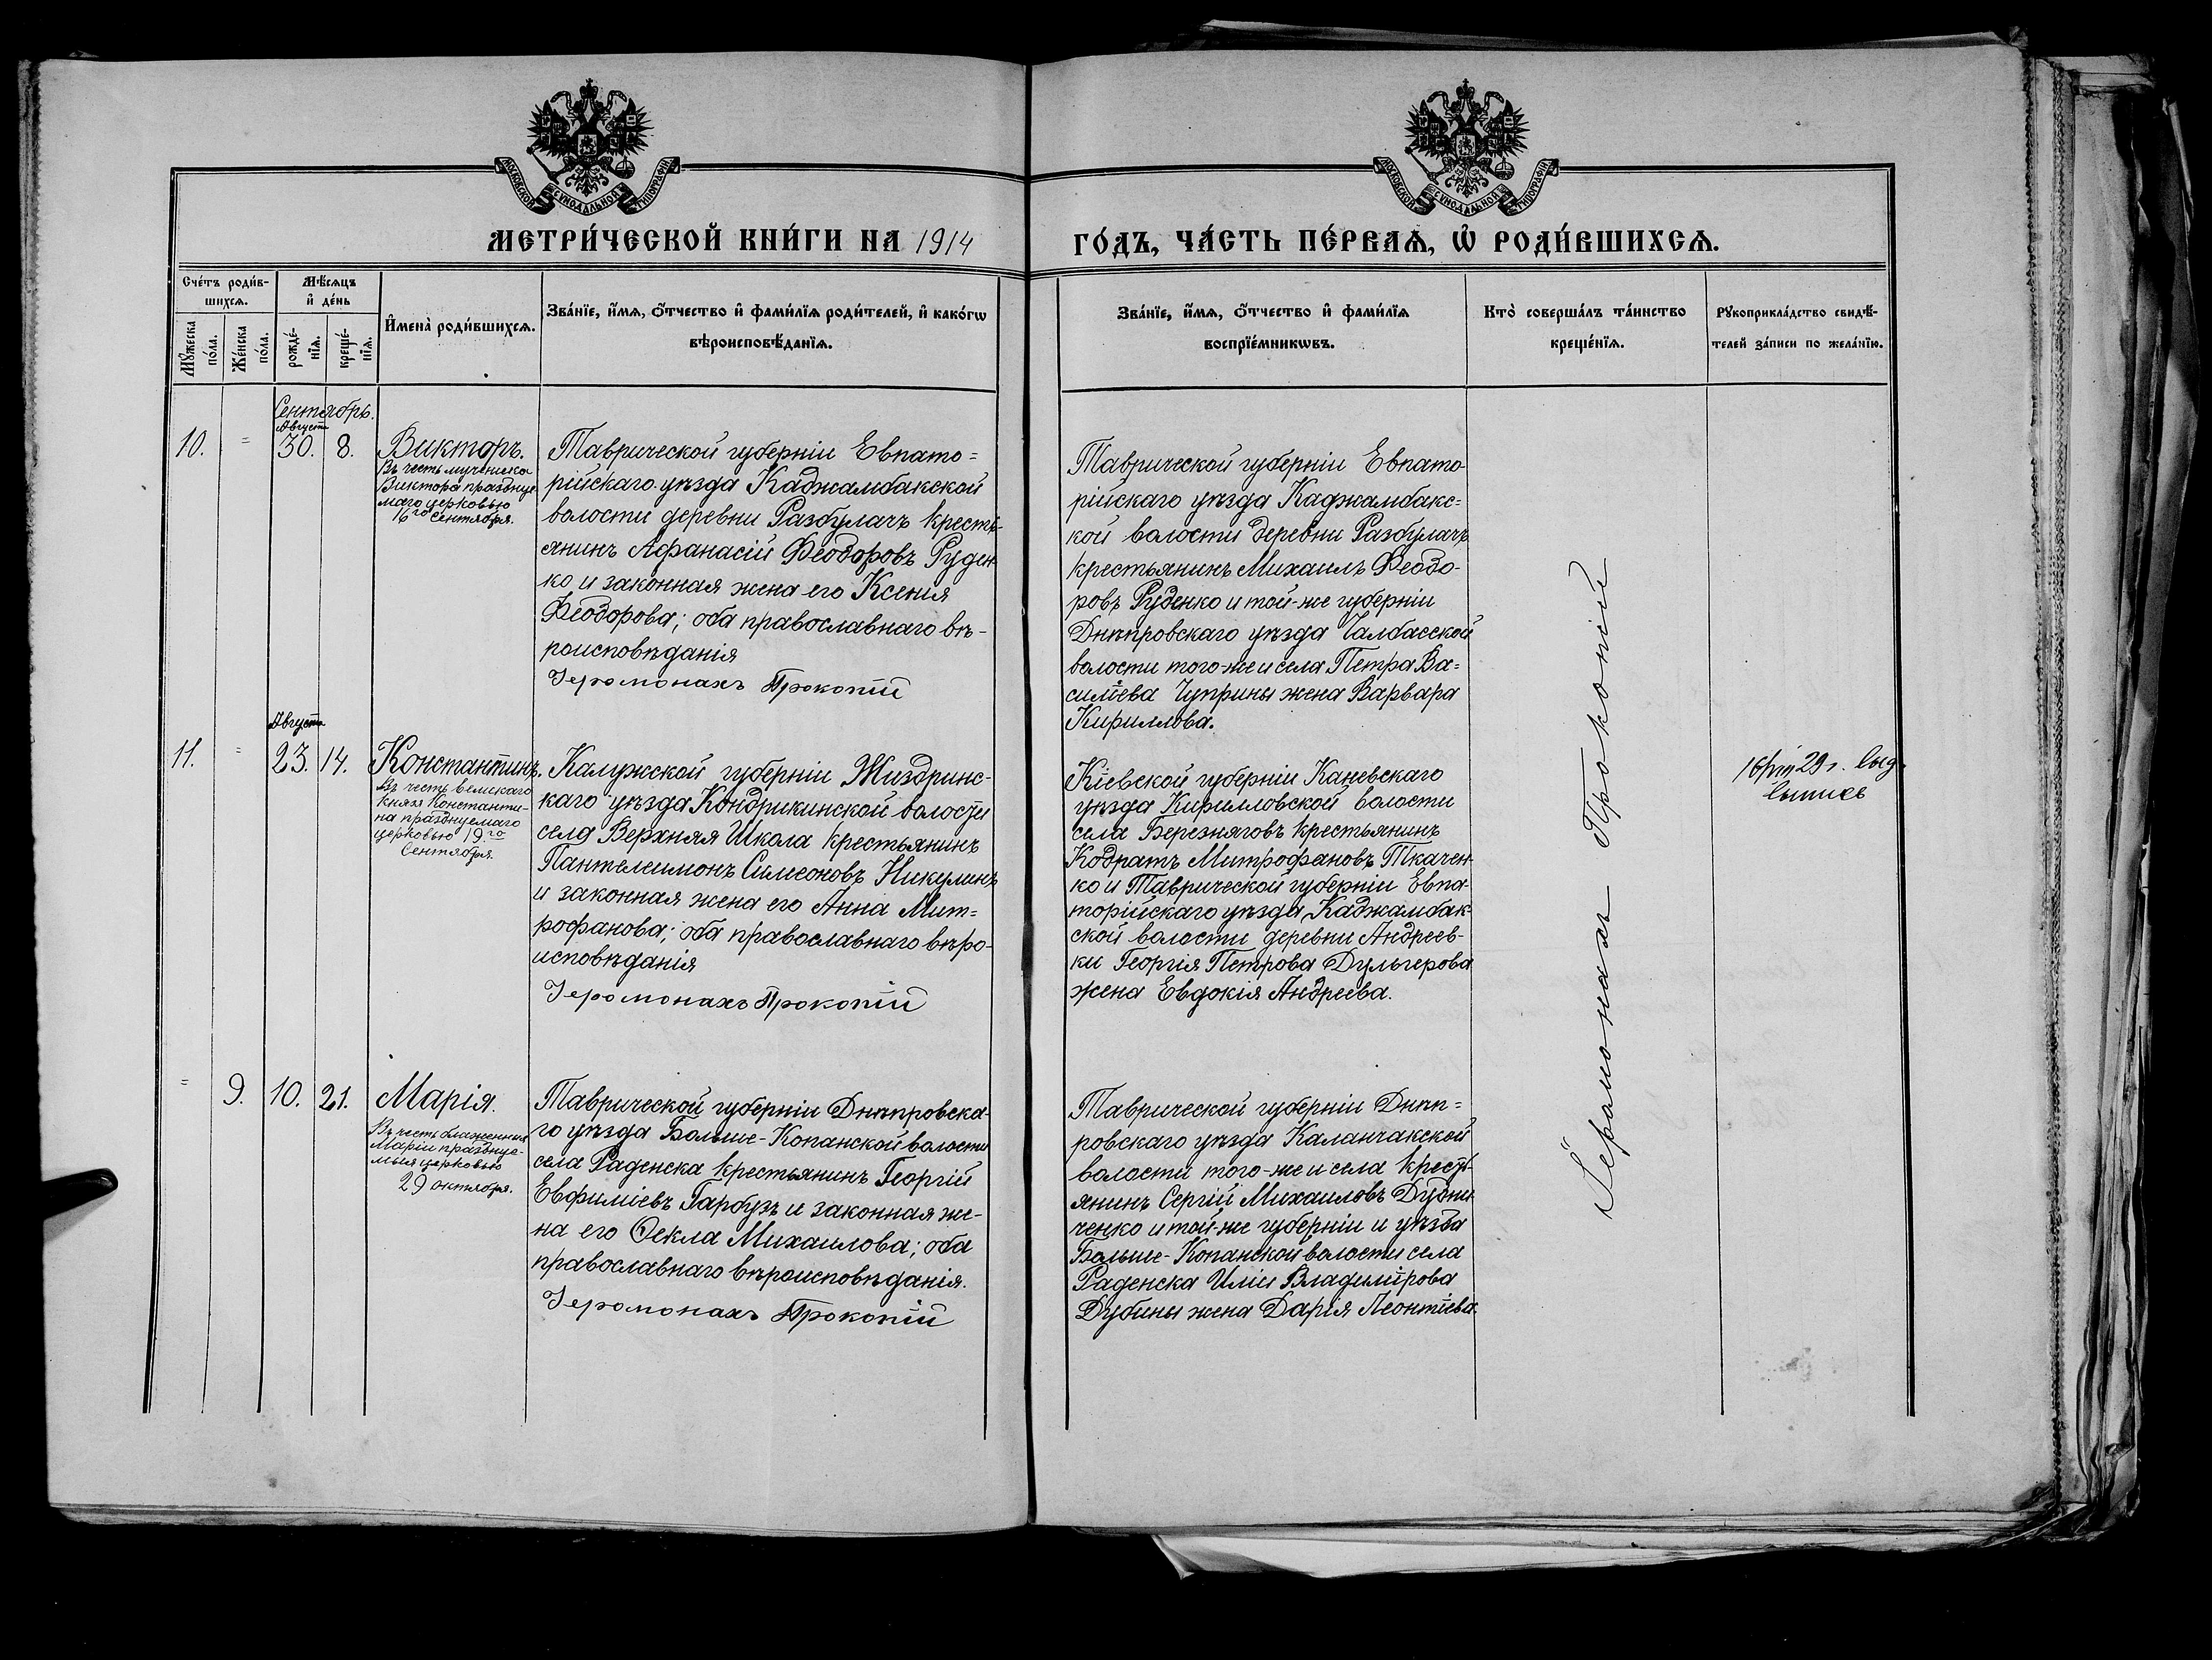 МОСКОВСКОЙ СѴНОДАЛЬНОЙ ТИПОГРАФІИ
МОСКОВСКОЙ СѴНОДАЛЬНОЙ ТИПОГРАФІИ
МЕТРИ́ЧЕСКОЙ КНИ́ГИ НА 1914
ГО́ДЪ, ЧА́СТЬ ПЕ́РВАѦ, Ѡ҆ РОДИ́ВШИХСѦ.
Сче́тъ роди́в-
шихсѧ.
Мѣ́сѧцъ
и҆ де́нь
Мꙋ́жеска
по́ла.
Же́нска
по́ла.
рожде́-
нїѧ.
креще́-
нїѧ.
И҆мена̀ роди́вшихсѧ.
Зва́нїе, и҆́мѧ, ѻ҆́тчество и҆ фами́лїѧ роди́телей, и҆ како́гѡ
вѣроисповѣ́данїѧ.
Зва́нїе, и҆́мѧ, ѻ҆́тчество и҆ фами́лїѧ
воспрїе́мникѡвъ.
Кто̀ соверша́лъ та́инство
креще́нїѧ.
Рꙋкоприкла́дство свидѣ́-
телей за́писи по жела́нїю.
Сентябрь.
Августъ
10.
=
30.
8.
Викторъ.
Въ честь мученика
Виктора празднуе-
маго церковью
16го Сентября.
Таврической губерніи Евпато=
рійскаго уѣзда Каджамбакской
волости деревни Разбулачъ кресть-
янинъ Афанасій Феодоровъ Руден-
ко и законная жена его Ксенія
Феодорова; оба православнаго вѣ-
роисповѣданія
Іеромонахъ Прокопій
Таврической губерніи Евпато-
рійскаго уѣзда Каджамбакс-
кой волости деревни Разбулачъ
крестьянинъ Михаилъ Феодо-
ровъ Руденко и той-же губерніи
Днѣпровскаго уѣзда Чалбасской
волости того-же и села Петра Ва=
силіева Чуприны жена Варвара
Кириллова.
Іеромонахъ Прокопій
Августъ
11.
=
23.
14.
Константинъ.
Въ честь великаго
Князя Константи-
на празднуемаго
церковью 19.го
Сентября.
Калужской губерніи Жиздринс-
каго уѣзда Кондрикинской волости
села Верхняя Школа крестьянинъ
Пантелеимонъ Симеоновъ Никулинъ
и законная жена его Анна Мит=
рофанова; оба православнаго вѣро-
исповѣданія
Іеромонахъ Прокопій
Кіевской губерніи Каневскаго
уѣзда Кирилловской волости
села Березняговъ крестьянинъ
Кодратъ Митрофановъ Ткачен-
ко и Таврической губерніи Евпа-
торійскаго уѣзда Каджамбак-
ской волости деревни Андреев-
ки Георгія Петрова Дульгерова
жена Евдокія Андреева.
29 г. выд.
=
9.
10.
21.
Марія.
Въ честь блаженныя
Маріи празднуе-
мыя церковью
29 октября.
Таврической губерніи Днѣпровска-
го уѣзда Больше-Копанской волости
села Раденска крестьянинъ Георгій
Евфиміевъ Гарбузъ и законная же-
на его Ѳекла Михаилова; оба
православнаго вѣроисповѣданія.
Іеромонахъ Прокопій
Таврической губерніи Днѣп=
ровскаго уѣзда Каланчакской
волости того-же и села кресть-
янинъ Сергій Михаиловъ Дудни
ченко и той-же губерніи и уѣзда
Больше-Копанской волости села
Раденска Иліи Владимірова
Дубины жена Дарія Леонтіева.